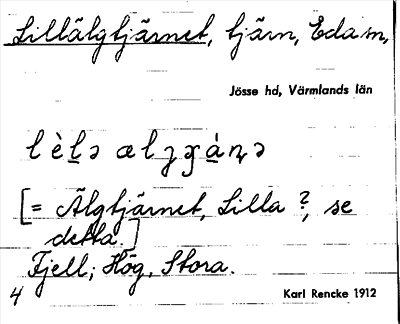 Lillälgtjärnet, tjärn, Eda sn,
Jösse hd, Värmlands län
[= Älgtjärnet, Lilla ?, se
detta.]
Fjell; Hög, Stora.
4
Karl Rencke 1912